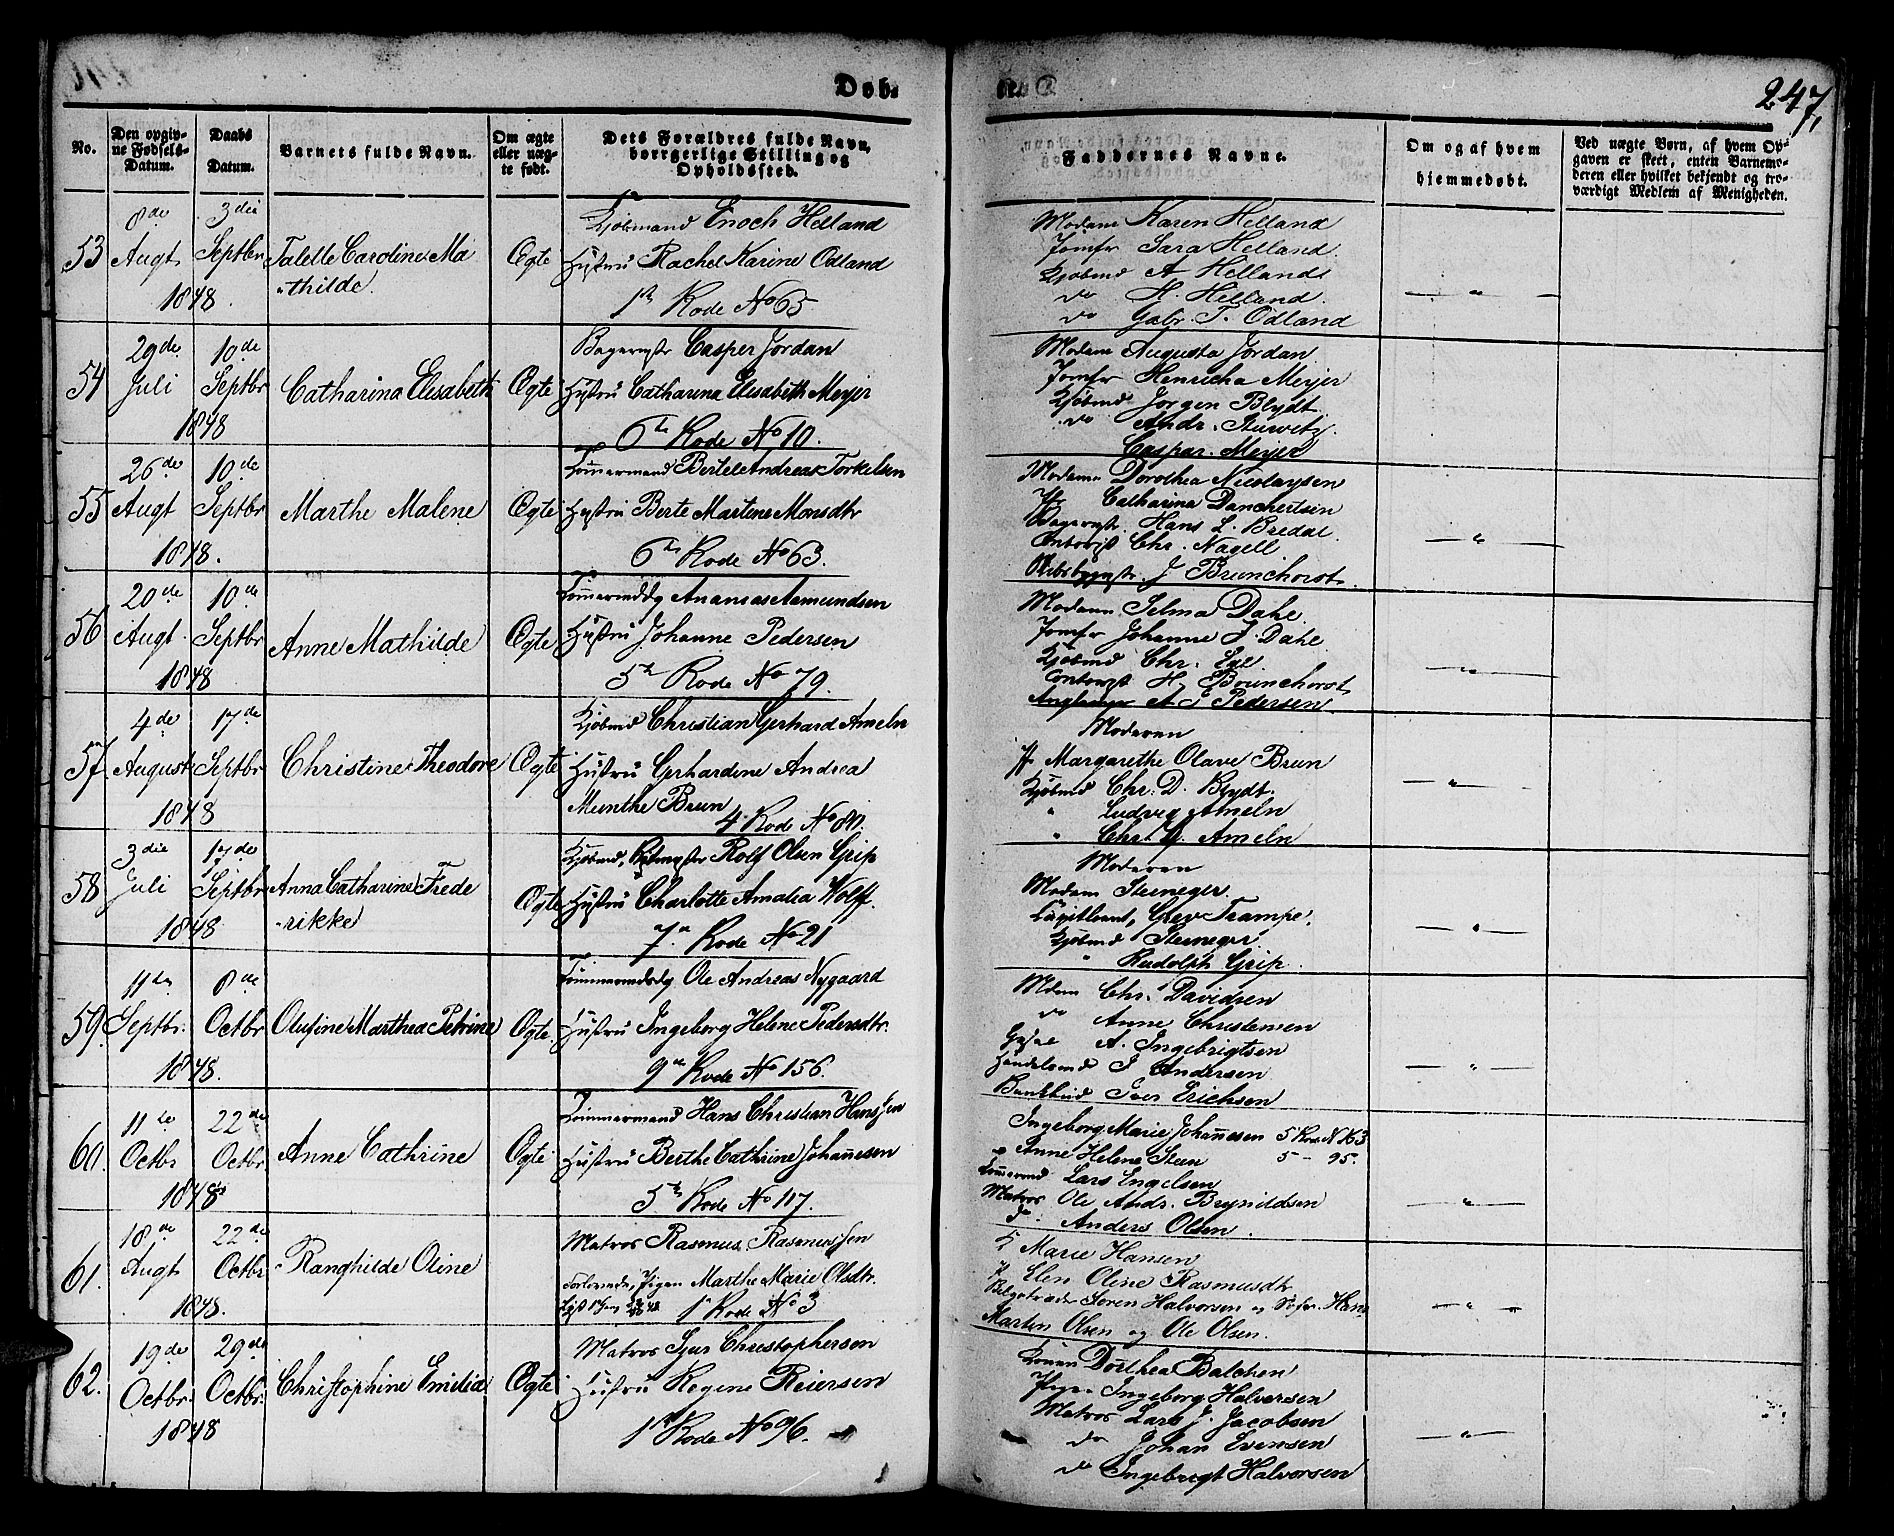 Døb.
247,
No.
Den opgiv-
ne Fødsels-
Datum.
Daabs
Datum.
Barnets fulde Navn.
Om ægte
eller uæg-
te født.
Dets Forældres fulde Navn,
borgerlige Stilling og
Opholdssted.
Faddernes Navne.
Om og af hvem
hjemmedøbt.
Ved uægte Børn, af hvem Op-
gaven er skeet, enten Barnemo-
deren eller hvilket bekjendt og tro-
værdigt Medlem af Menigheden.
53
8de
Augt
3die
Septbr
1848.
Talette Caroline Ma
-thilde.
Ægte
Kjøbmand Enoch Helland
Hustru Rachel Karine Odland
1ste Rode No 65
Madam Karen Helland
Jomfr Sara Helland
Kjøbmd A Helland
do H. Helland.
do Gabr. T. Odland
54
29de
Juli
10de
Septbr
1848
Catharina Elisabeth
Ægte
Bagermstr Casper Jordan
Hustru Catharina Elisabeth Meyer
6te Rode No 10.
Madam Augusta Jordan
Jomfr Henricha Meyer
Kjøbmd Jørgen Blydt
do Andr.
Caspar Meyer
55
26de
Augt
10de
Septbr
1848.
Marthe Malene
Ægte
Tømmermand Bertel Andreas Torkelsen
Hustru Berte Martene Monsdtr
6te Rode No 63.
Madame Dorothea Nicolaysen
Jfr Catharina Danchertsen
Bagermstr. Hans L. Bredal.
Contorist Chr. Nagell
Skibsbygmstr. J Brunchorst.
56
20de
Augt.
10de
Septbr
1848
Anne Mathilde
Ægte
Ananias Aamundsen
Hustru Johanne Pedersen
5te Rode No 79.
Madam Selma Dahl.
Jomfr Johanne J. Dahl
Kjøbmd Chr.
Contorist H. Brunchorst
A E Pedersen
57.
4de
August
17de
Septbr
1848
Christine Theodore
Ægte
Kjøbmd Christian Gerhard Ameln
Hustru Gerhardine Andrea
Munthe Brun
4 Rode No 80.
Moderen
Jfr Margarethe Olave Brun
Kjøbmd Chr. D. Blydt.
" Ludvig Ameln
" Chr. G. Ameln
58
3die
Juli
17de
Septbr
1848
Anna Catharine Frede
-rikke
Ægte
Kjøbmd, Rolf Olsen Grip
Hustru Charlotte Amalia Wolff.
7de Rode No 21
Moderen
Madam Steineger.
Grev Trampe.
Kjøbmd Steineger
" Rudolph Grip
59.
11te
Septbr.
8de
Octbr
1848.
Olufine Marthea Petrine
Ægte.
Ole Andreas Nygaard
Hustru Ingeborg Helene Pedersdtr.
9de Rode No 156.
Mdam Chr. Davidsen
do Anne Christensen
A. Ingebrigtsen
Handelsmd J Andersen
Iver Erichsen
60.
11te
Octbr
22de
Octbr
1848
Anne Cathrine
Ægte
Tømmermand Hans Christian Hanssen
Hustru Berthe Cathrine Johannesen
5te Rode No 117.
Ingeborg Marie Johannesen 5 Rode No 163
Anne Helene Steen 5 – 95.
Tømermd Lars Engelsen
Matros Ole Andr. Brynildsen
do. Anders Olsen.
61.
18de
Augt
22de
Octbr
1848.
Ranghilde Oline
Matros Rasmus Rasmussen
Forlovede, Pigen Marthe Marie Olsdtr.
1ste Rode No 3
K Marie Hansen
P. Elen Oline Rasmusdtr
Søren Halvorsen og Hans
Martin Olsen og Ole Olsen.
62.
19de
Octbr
29de
Octbr.
1848
Christophine Emilia
Ægte
Matros Sjur Christophersen
Hustru Regene Reiersen
1ste Rode No 96.
Konen Dorthea Balchen
Pigen Ingeborg Halversen
Matros Lars J. Jacobsen
do Johan Evensen
do Ingebregt Halvorsen